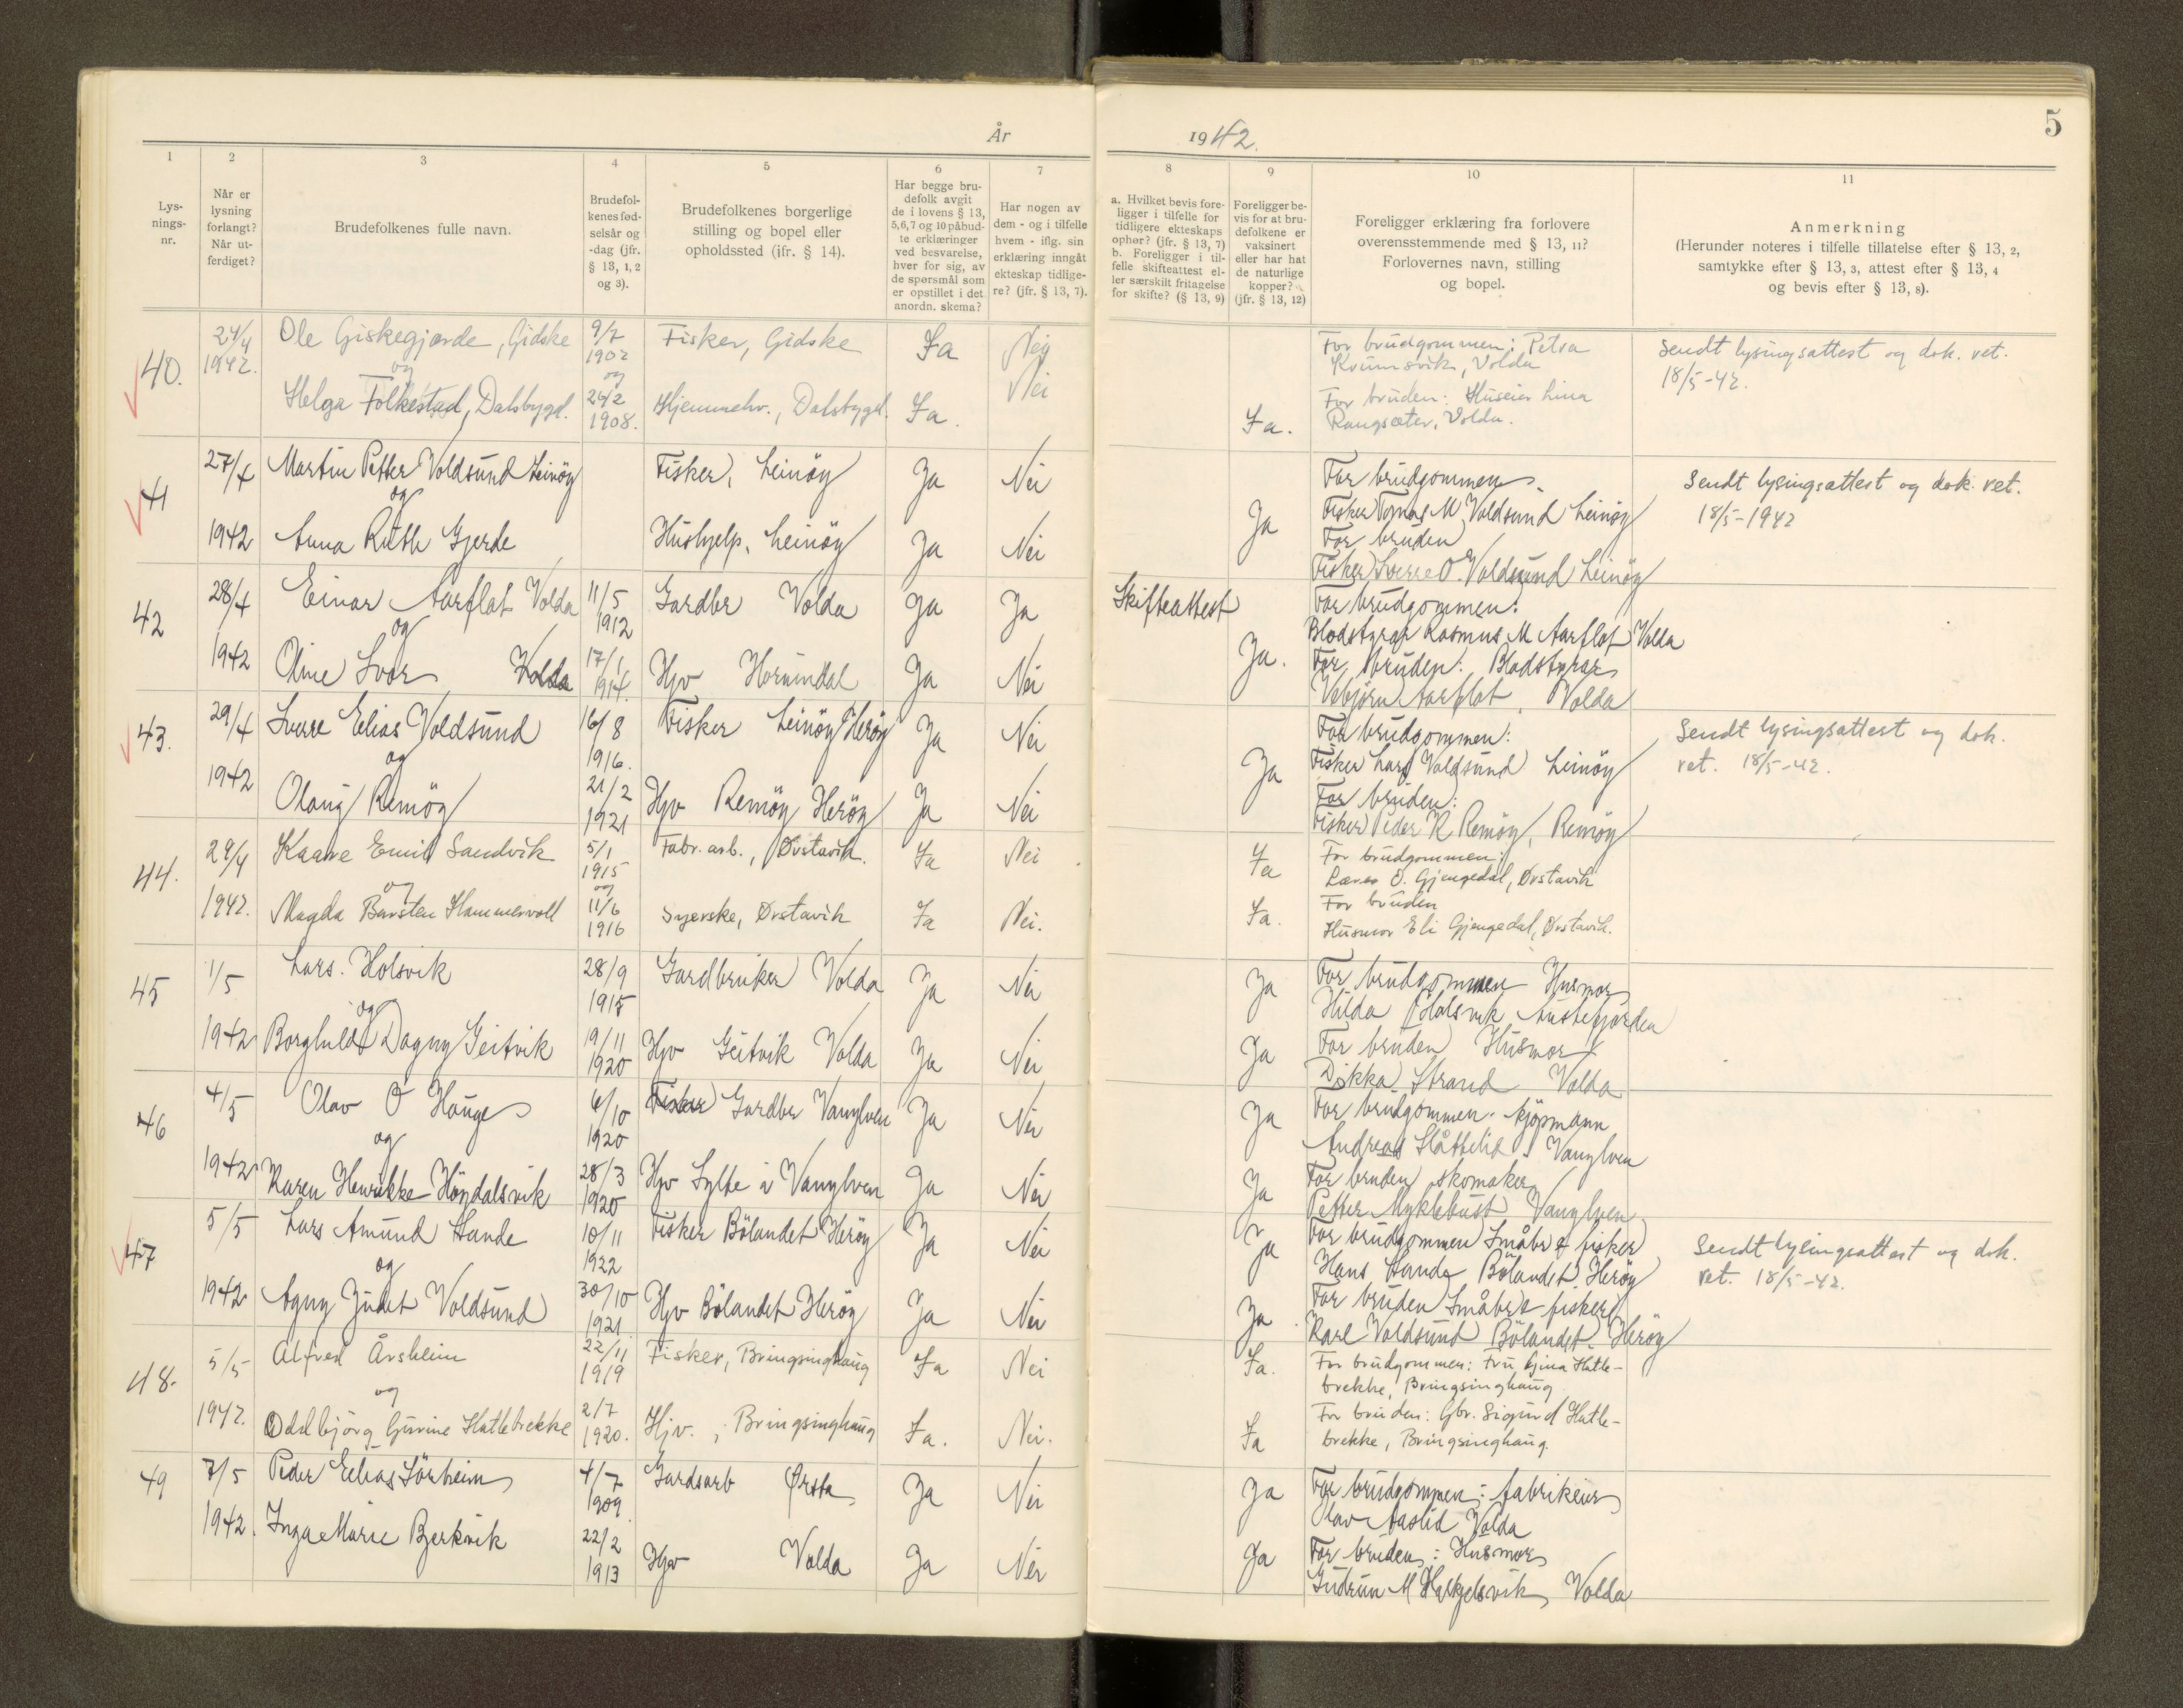 År 1942.
5
1 2 3 4 5 6 7 8 9 10 11
Lysnings-nr.
Når er lysning forlangt? Når utferdiget?
Brudefolkenes fulle navn.
Brudefolkenes fødselsår og -dag (jfr. § 13, 1, 2 og 3).
Brudefolkenes borgerlige stilling og bopel eller opholdssted (jfr. § 14).
Har begge brudefolk avgit de i lovens § 13, 5,6,7 og 10 påbudte erklæringer ved besvarelse, hver for sig, av de spørsmål som er opstillet i det anordn. skema?
Har nogen av dem - og i tilfelle hvem - iflg. sin erklæring inngåt ekteskap tidligere? (jfr. § 13, 7).
a. Hvilket bevis foreligger i tilfelle for tidligere ekteskaps ophør? (jfr. § 13, 7) b. Foreligger i tilfelle skifteattest eller særskilt fritagelse for skifte? (§ 13, 9)
Foreligger bevis for at brudefolkene er vaksinert eller har hat de naturlige kopper? (jfr. § 13, 12)
Foreligger erklæring fra forlovere overensstemmende med § 13, 11? Forlovernes navn, stilling og bopel.
Anmerkning (Herunder noteres i tilfelle tillatelse efter § 13, 2, samtykke efter § 13, 3, attest efter § 13, 4 og bevis efter § 13, 8).
40. 24/4 1942. Ole Giskegjørde, Gidske 9/7 1902 Fisker, Gidske Ja Nei
og
Helga Folkestad, Dalsbygd. 24/2 1908. Hjemmehv., Dalsbygd. Ja. Nei Ja.
For brudgommen: Petra
Krumsvik, Volda
For bruden: Huseier Lina
Rangsæter, Volda.
Sendt lysingsattest og dok. ret.
18/5-42.
41 27/4 Martin Petter Voldsund Leinöy Fisker, Leinöy Ja Nei
og
1942 Anna Ruth Gjerde Hushjelp, Leinöy Ja Nei Ja
For brudgommen
Fisker M Voldsund Leinöy
For bruden
Fisker Sverre O. Voldsund Leinöy
Sendt lysingsattest og dok. ret.
18/5-1942
42 28/4 Einar Aarflot Volda 11/5 1912 Gardbr Volda Ja Ja Skifteattest
og
1942 Oline Svor Volda 17/1 1914. Hjv Hornindal Ja Nei Ja.
For brudgommen:
Bladstyrar Rasmus M Aarflot Volda
For bruden: Bladstyrar
Vebjørn Aarflot, Volda
43. 29/4 Sverre Elias Voldsund 16/8 1916. Fisker Leinöy Heröy Ja Nei
og
1942 Olaug Remöy 21/2 1921 Hjv Remöy Heröy Ja Nei Ja
For brudgommen:
Fisker Lars Voldsund Leinöy
For bruden:
Fisker Peder K Remöy, Remöy
Sendt lysingsattest og dok.
ret. 18/5-42.
44. 29/4 Kaare Emil Sandvik 5/1 1915 Fabr. arb., Ørstavik. Ja Nei Ja
og
1942. Magda Barsten Hammervoll 11/6 1916 Syerske, Ørstavik Ja Nei. Ja.
For brudgommen:
O. Gjengedal, Ørstavik
For bruden
Husmor Eli Gjengedal, Ørstavik.
45 1/5 Lars Holsvik 28/9 1915 Gardbruker Volda Ja Nei Ja
og
1942 Borghild Dagny Geitvik 19/11 1920 Hjv Geitvik Volda Ja Nei Ja
For brudgommen Husmor
Hilda Holsvik Austefjorden
For bruden Husmor
Dikka Strand Volda
46 4/5 Olav O Hauge 6/10 1920 Fisker Gardbr Vanylven Ja Nei Ja
og
1942 Karen Henrikke Höydalsvik 28/3 1920 Hjv Sylte i Vanylven Ja Nei Ja
For brudgommen. Kjöpmann
Andreas Slåttelid Vanylven
For bruden skomaker
Petter Myklebust Vanylven
47 5/5 Lars Amund Hande 10/11 1922 Fisker Bölandet Heröy Ja Nei Ja
og
1942 Agny Judit Voldsund 30/10 1921 Hjv Bölandet Heröy Ja Nei Ja
For brudgommen Småbr & fisker
Hans Hande Bölandet, Heröy
For bruden Småbr & fisker
Karl Voldsund Bölandet Heröy
Sendt lysingsattest og dok.
ret. 18/5-42.
48. 5/5 Alfred Årsheim 22/11 1919 Fisker, Bringsinghaug Ja Nei Ja.
og
1942. Oddbjörg Gurine Hatlebrekke 2/7 1920. Hjv., Bringsinghaug Ja. Nei. Ja
For brudgommen: Fru Gina Hatle-
brekke, Bringsinghaug
For bruden: Gbr. Sigurd Hatle-
brekke, Bringsinghaug.
49 7/5 Peder Elias Sörheim 4/7 1909. Gardsarb Ørsta Ja Nei Ja
1942. Inga Marie Bjerkvik 22/2 1913 Hjv Volda Ja Nei Ja
For brudgommen: fabrikeier
Olav Aaslid Volda
For bruden: Husmor
Gudrun M Halkjelsvik, Volda